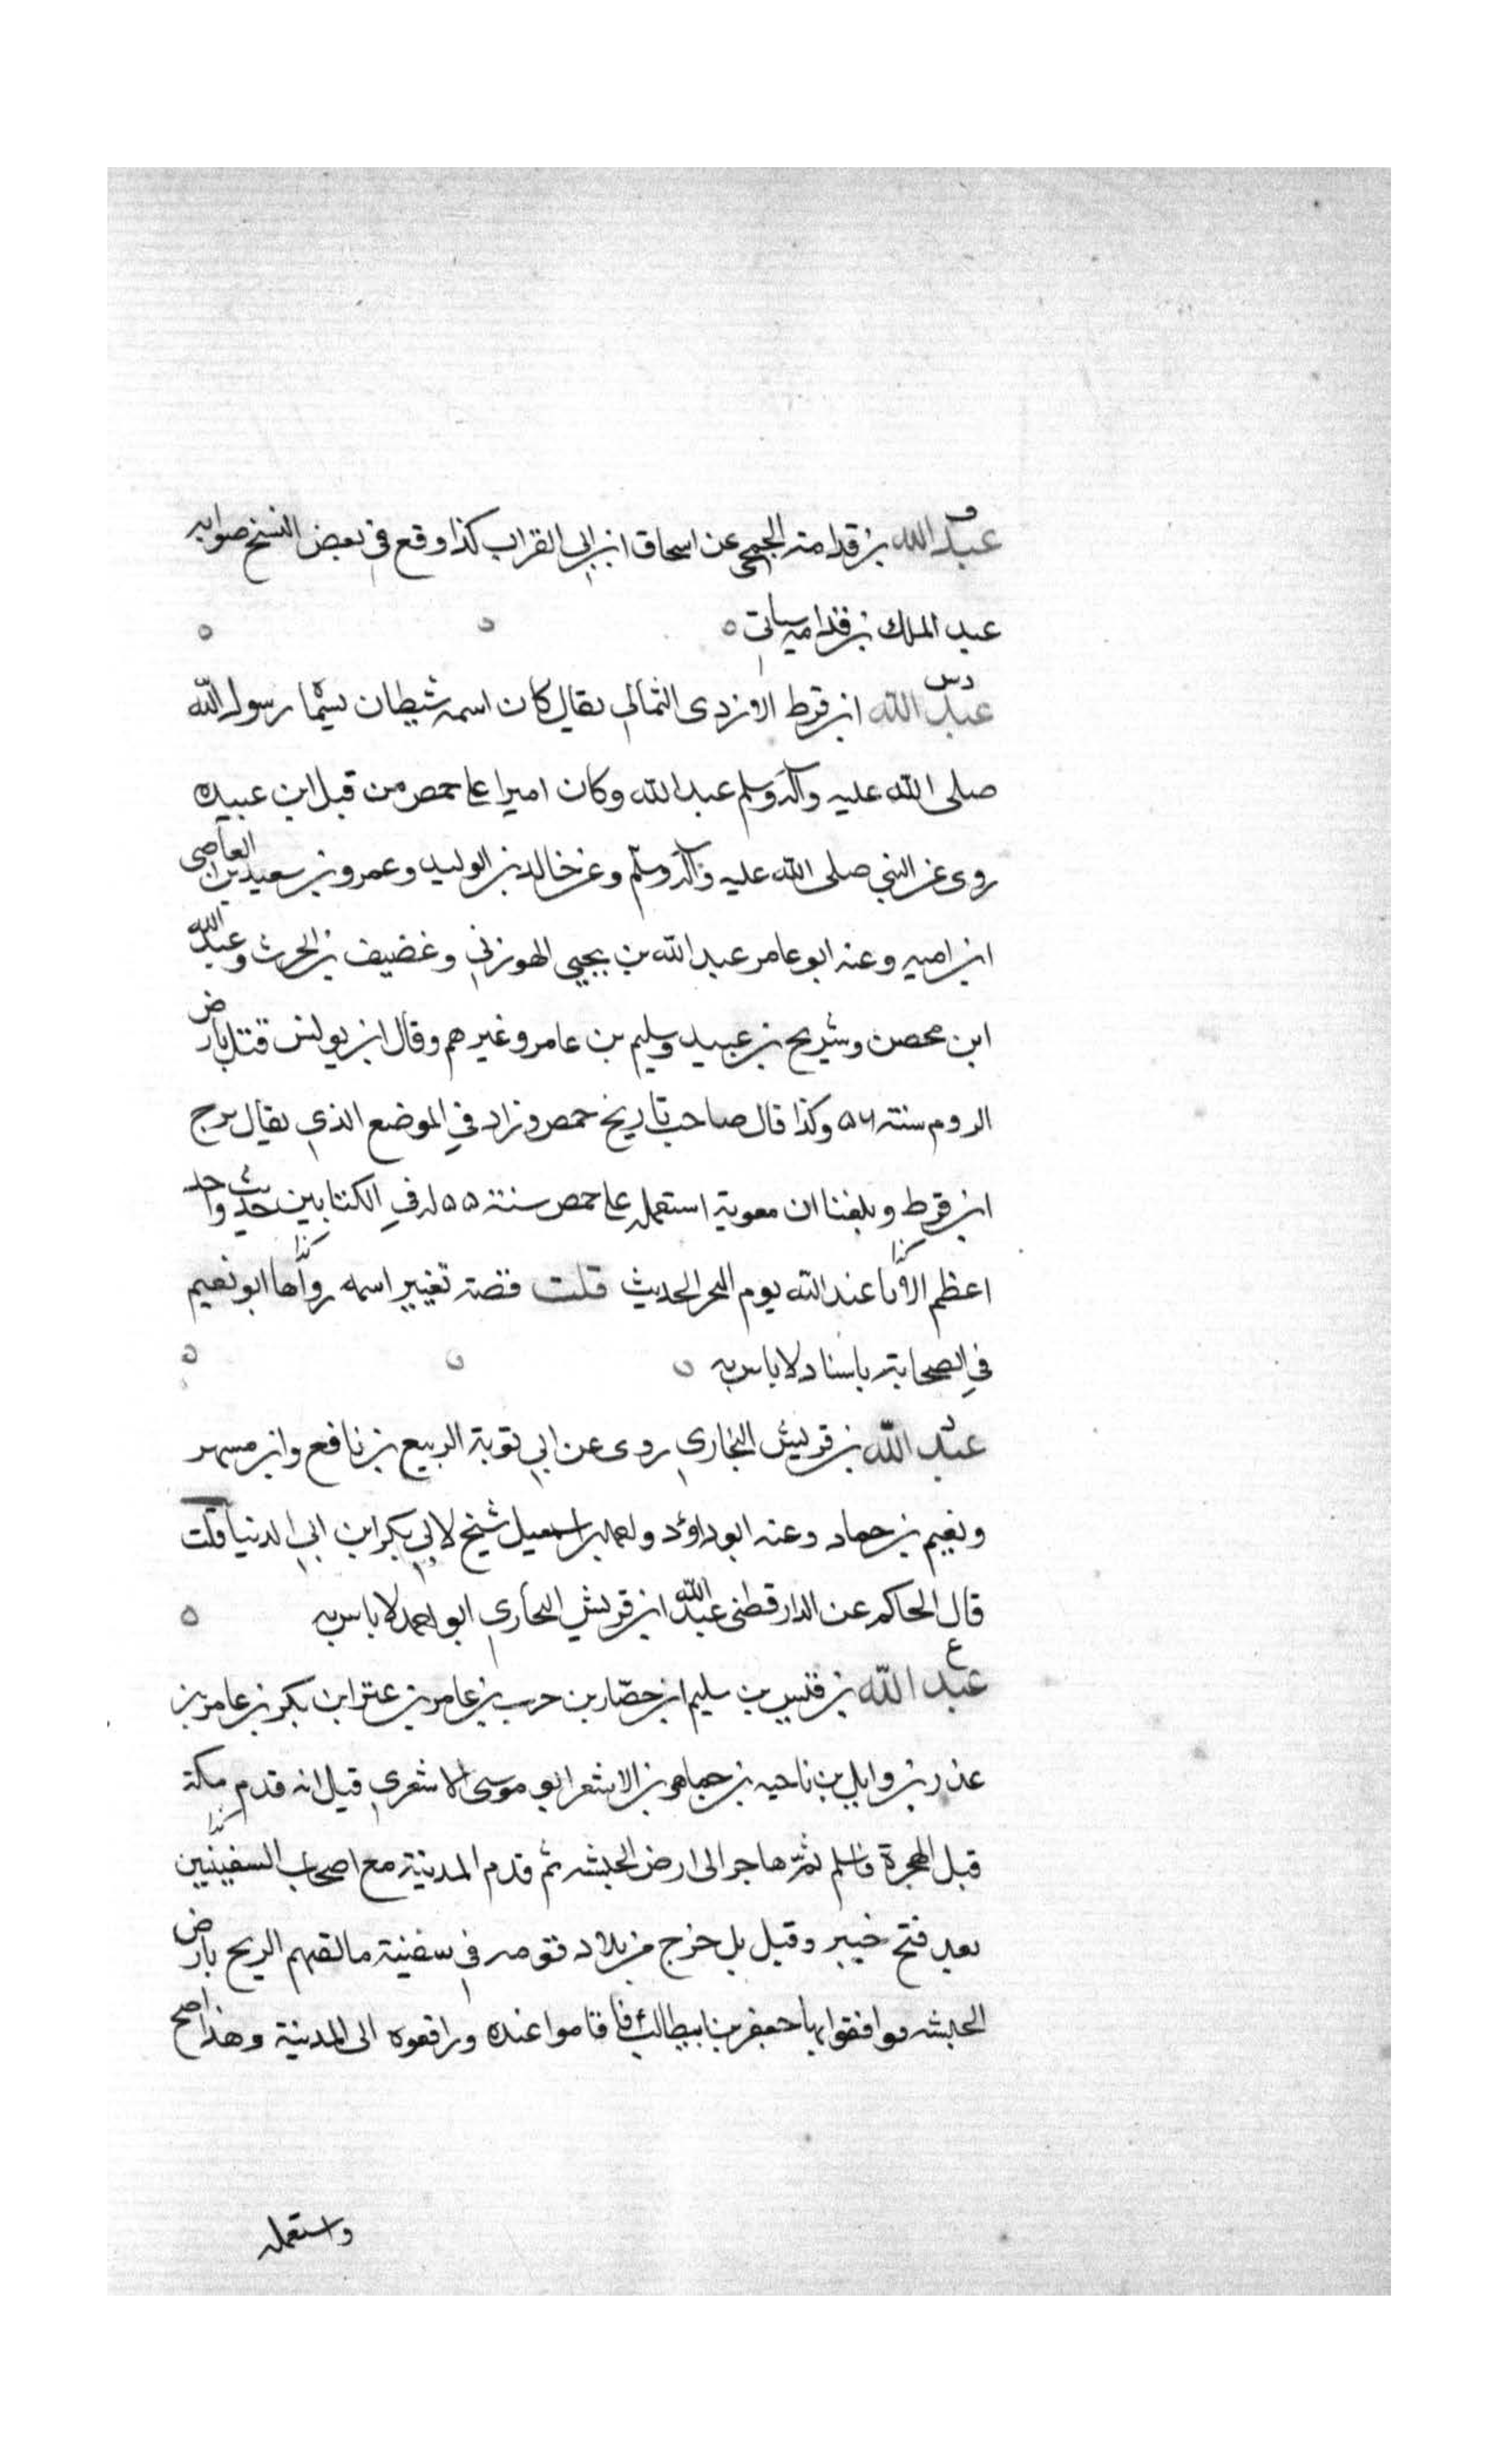 ق
عبد الله بن قدامة الجمحي عن اسحاق ابن ابي الفرات كذا وقع في بعض النسخ صوابه
عبد الملك بن قدامه سياتي ه ه ه
دس
عبد الله ابن قرط الازدى الثمالي يقال كان اسمه شيطان رسول الله
صلى الله عليه وآله وسلم عبد الله وكان اميرا على حمص من قبل ابن عبيده
روى عن النبي صلى الله عليه وآله وسلم وعن خالد بن الوليد وعمرو بن سعيد بن العاصى
ابن اميه وعنه ابو عامر عبد الله بن يحيى الهوزني وغضيف بن الحرث وعبد الله
ابن محصن وشريح بن عبيد وسليم بن عامر وغيرهم وقال ابن يونس قتل بارض
الروم سنة ٥٦ وكذا قال صاحب تاريخ حمص وزاد في الموضع الذي يقال برج
ابن قرط وبلغنا ان معوية استعمله على حمص سنة ٥٥ له في الكتابين حديث واحد
كذا كذا
اعظم عند الله يوم النحر الحديث قلت قصة تغيير اسمه رواها ابو نعيم
في الصحابة باسناد لا باس به ه ه ه
د
عبد الله بن قريش البخاري روى عن ابي توبة الربيع بن نافع وابن مسهر
ونعيم بن حماد وعنه ابو داؤد اسمعيل شيخ لابي بكر ابن ابي الدنيا قلت
قال الحاكم عن الدارقطنى عبد الله ابن قريش البخاري ابو احمد لا باس به ه
ع
عبد الله بن قيس بن سليم ابن حضار بن حرب بن عامر بن عتر ابن بكر بن عامر بن
عذر بن وايل بن ناحيه بن جماهر بن الاشعر ابو موسى الاشعري قيل انه قدم مكة
كذا
قبل الهجرة فاسلم ثم هاجر الى ارض الحبشه ثم قدم المدينة مع اصحاب السفينتين
بعد فتح خيبر وقيل بل خرج من بلاد قومه في سفينة مالقهم الريح بارض
الحبشه فوافقوا بها جعفر بن ابيطالب فاقاموا عنده ورافقوه الى المدينة وهذا اصح
واستعمله